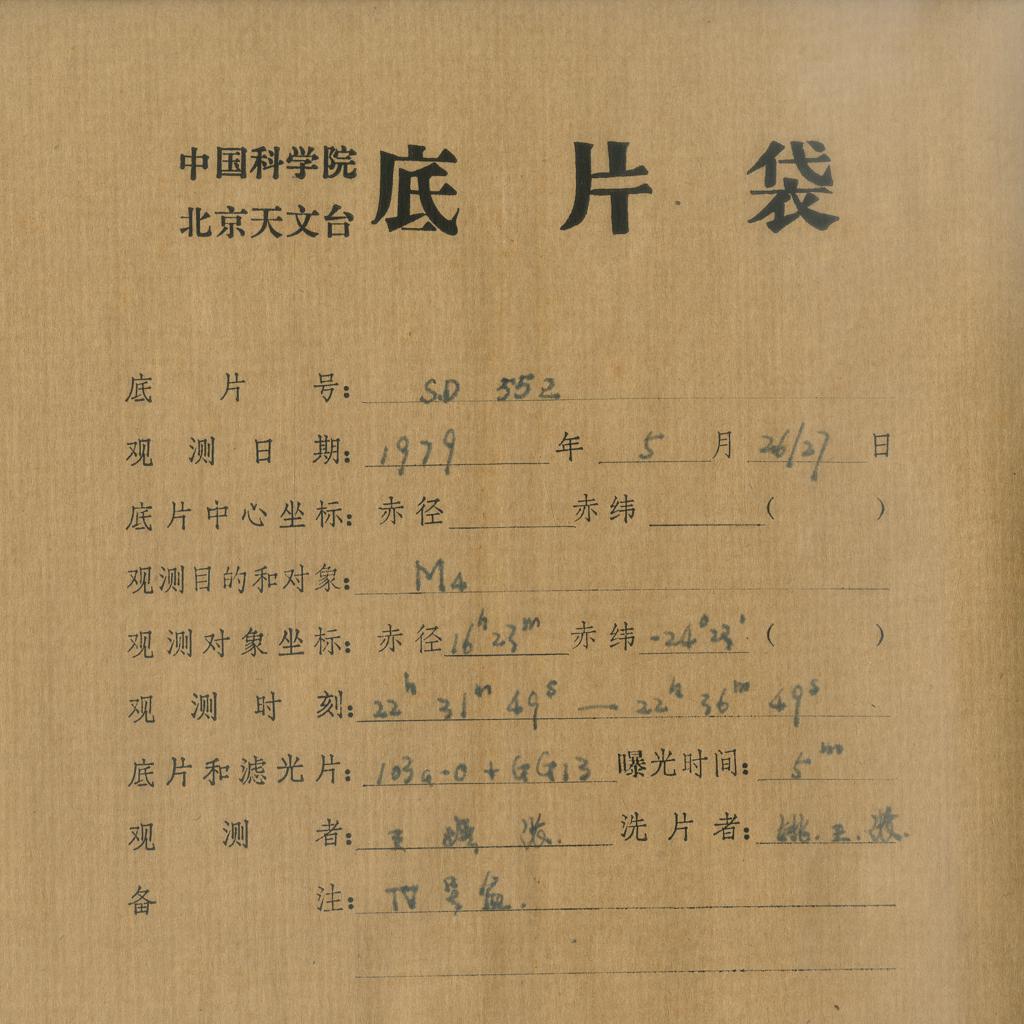 中国科学院
北京天文台
底片袋
底片号: S.D 552
观测日期: 1979 年 5 月 26/27 日
底片中心坐标: 赤径 赤纬 ( )
观测目的和对象: M4
观测对象坐标: 赤径 16ʰ23ᵐ 赤纬 -24°23′ ( )
观测时刻: 22ʰ 31ᵐ 49ˢ — 22ʰ 36ᵐ 49ˢ
底片和滤光片: 103a-O + GG13 曝光时间: 5ᵐ
观测者: 王 洗片者: 姚.王.
备注: IV 号盒.